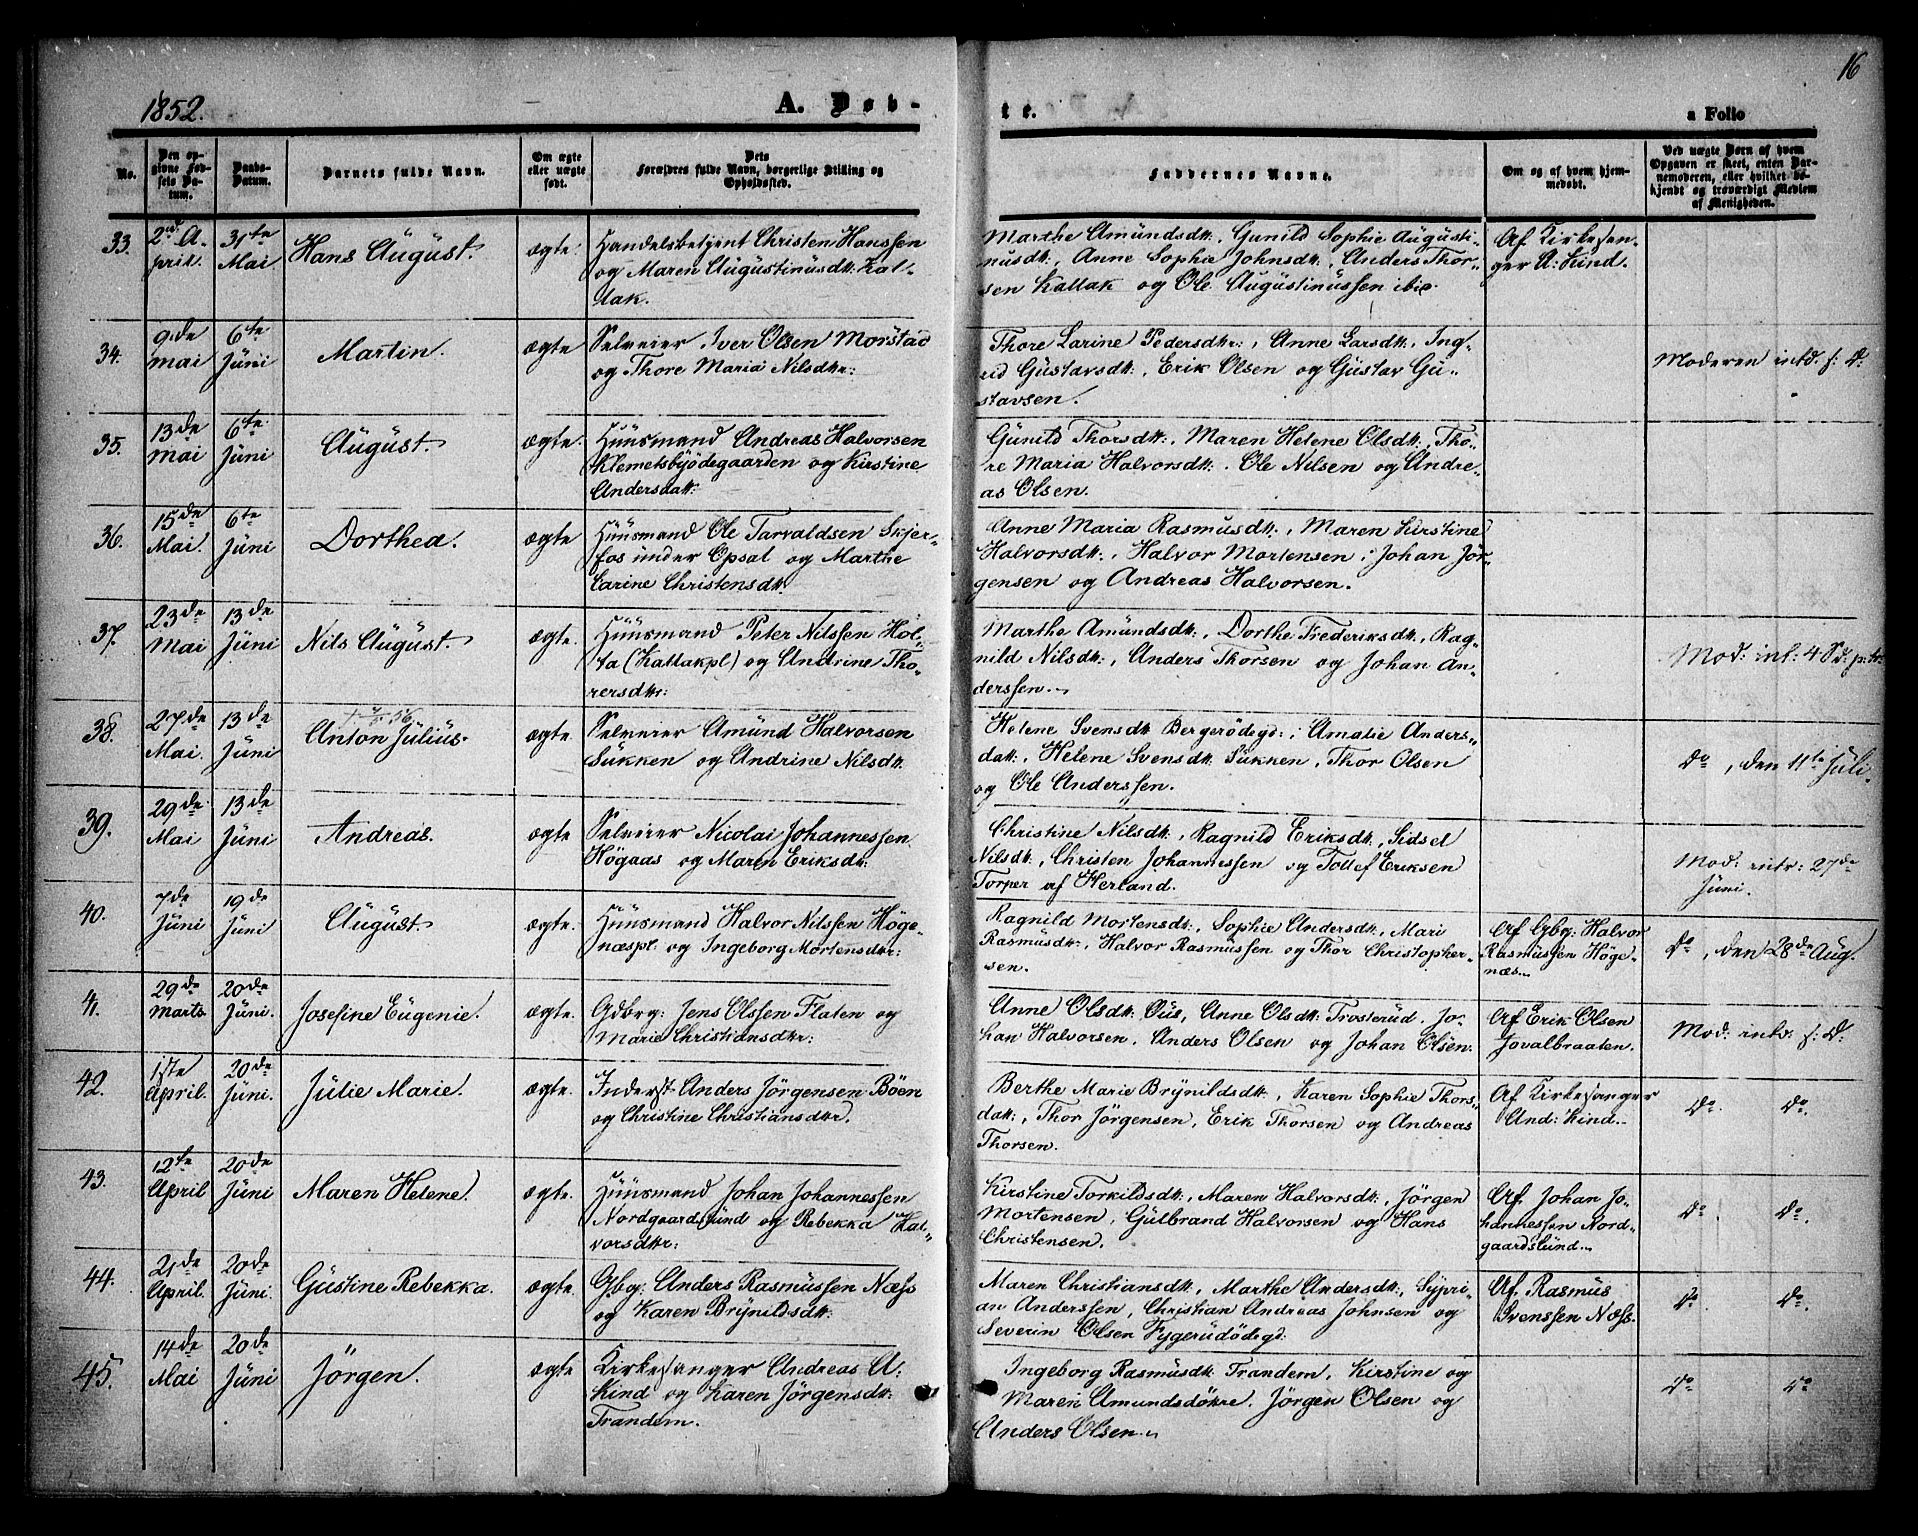 16
1852.
A. Døb-
te.
a Folio
No.
Den op-
givne Fød-
sels Da-
tum.
Daabs-
Datum.
Barnets fulde Navn.
Om ægte
eller uægte
født.
Dets
Forældres fulde Navn, borgerlige Stilling og
Opholdssted.
Faddernes Navne.
Om og af hvem hjem-
medøbt.
Ved uægte Børn af hvem
Opgaven er skeet, enten Bar-
nemoderen, eller hvilket be-
kjendt og troværdigt Medlem
af Menigheden.
33.
2den A-
pril.
31te
Mai
Hans August.
ægte.
Handelsbetjent Christen Hanssen
og Maren Augustinusdtr: Kal-
lak.
Marthe Amundsdtr:, Gunild Sophie Augusti-
nusdtr:, Anne Sophie Johnsdtr:, Anders Thor-
sen Kallak og Ole Augustinussen ibid.
Af Kirkesen-
ger A: Kind.
34.
9de
Mai
6te
Juni
Martin.
ægte
Selveier Iver Olsen Morstad
og Thore Maria Nilsdtr:
Thore Larine Pedersdtr:, Anne Larsdtr:, Ing-
rid Gustavsdtr:, Erik Olsen og Gustav Gu-
stavsen.
Moderen intd. s: D:
35.
13de
Mai
6te
Juni
August.
ægte.
Huusmand Andreas Halvorsen
Klemetsbyødegaarden og Kirstine
Andersdatt:
Gunild Thorsdtr:, Maren Helene Olsdtr:, Tho-
re Maria Halvorsdtr:, Ole Nilsen og Andre-
as Olsen.
36.
15de
Mai.
6te
Juni
Dorthea.
ægte
Huusmand Ole Tarvaldsen Skjer-
fos under Opsal og Marthe
Larine Christensdtr:
Anne Maria Rasmusdtr:, Maren Kirstine
Halvorsdtr:, Halvor Mortensen, Johan Jør-
gensen og Andreas Halvorsen.
37.
23de
Mai
13de
Juni
Nils August.
ægte.
Huusmand Peter Nilssen Hol-
ta (Kallakpl) og Andrine Tho-
rersdtr:
Marthe Amundsdtr:, Dorthe Frederiksdtr:, Rag-
nild Nilsdtr:, Anders Thorsen og Johan An-
derssen.
Mod: int: 4 Sd: p: tr:
38.
27de
Mai.
13de
Juni
Anton Julius.
ægte
Selveier Amund Halvorsen
Sukken og Andrine Nilsdtr.
Helene Svensdtr Bergerødegd:, Amalie Anders-
datt:, Helene Svensdtr: Sukken, Thor Olsen
og Ole Anderssen.
do, den 11te Juli
39.
29de
Mai
13de
Juni
Andreas.
ægte
Selveier Nicolai Johannessen
Högaas og Maren Eriksdtr:
Christine Nilsdtr:, Ragnild Eriksdtr:, Sidsel
Nilsdtr:, Christen Johannessen og Tollef Eriksen
Torper af Herland.
Mod: intr: 27de
Juni.
40.
7de
Juni
19de
Juni
August.
ægte.
Huusmand Halvor Nilssen Höge-
næspl: og Ingeborg Mortensdtr:
Ragnild Mortensdtr:, Sophie Andersdtr:, Mari
Rasmusdtr:, Halvor Rasmussen og Thor Christopher-
sen.
Af Gbg: Halvor
Rasmussen Höge-
næs.
do, den 28de Aug.
41.
29de
Marts.
20de
Juni.
Josefine Eugenie.
ægte.
Gdbrg: Jens Olssen Flaten og
Marie Christiansdtr:
Anne Olsdtr: Ous, Anne Olsdtr: Trosterud. Jo-
han Halvorsen, Anders Olsen og Johan Olsen.
Af Erik Olsen
Jovalbraaten.
Mod: intr: s: D:
42.
1ste
April.
20de
Juni.
Julie Marie.
ægte.
Inderst Anders Jörgensen Böen
og Christine Christiansdtr.
Berthe Marie Brynildsdtr:, Karen Sophie Thors-
datt:, Thor Jörgensen, Erik Thorsen og Andreas
Thorsen.
Af Kirkesanger
And: Kind.
do. do.
43.
12te
April
20de
Juni
Maren Helene.
ægte.
Huusmand Johan Johannessen
Nordgaardslund og Rebekka Hal-
vorsdtr:
Kirstine Torkildsdtr:, Maren Halvorsdtr:, Jörgen
Mortensen, Gulbrand Halvorsen og Hans
Christensen.
Af Johan Jo-
hannessen Nord-
gaardslund.
do. do.
44.
21de
April.
20de
Juni.
Gustine Rebekka.
ægte.
Gbg: Anders Rasmussen Næss
og Karen Brynildsdtr:
Maren Christiansdtr:, Marthe Andersdtr:, Sypri-
an Anderssen, Christian Andreas Johnsen og
Severin Olsen Fygerudödegd:
Af Rasmus
Svenssen Næss.
do. do.
45.
14de
Mai
20de
Juni
Jörgen.
ægte
Kirkesanger Andreas A:
Kind og Karen Jörgensdtr:
Trandem.
Ingeborg Rasmusdtr: Trandem, Kirstine og
Maren Amundsdøtre, Jörgen Olsen og
Anders Olsen.
do do